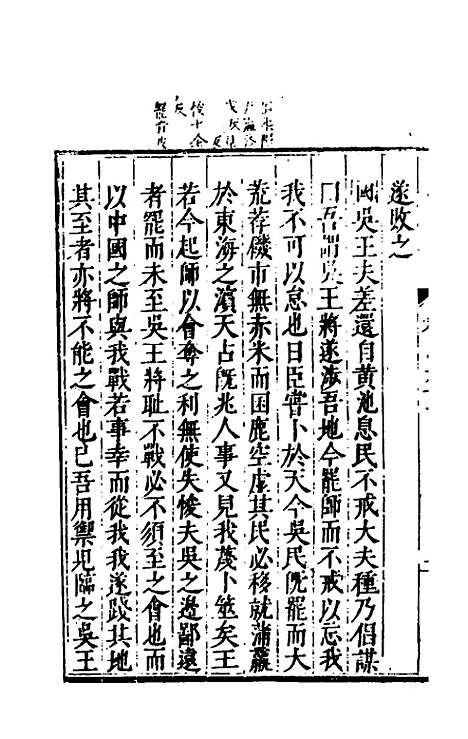 遂敗之
國吳王夫差還自黃池息民不戒大夫種乃倡謀
曰吾謂吳王將遂涉吾地今罷師而不戒以忘我
我不可以怠也日臣嘗卜於天今吳民既罷而大
荒荐磯市無赤米而囷鹿空虛其民必移就蒲蠃
於東海之濱天占既兆人事又見我蔑卜筮矣王
若今起師以會奪之利無使失悛夫吳之邊鄙遠
者罷而未至吳王將恥不戰必不須至之會也而
以中國之師與我戰若事幸而從我我遂踐其地
其至者亦將不能之會也已吾用禦兒臨之吳王